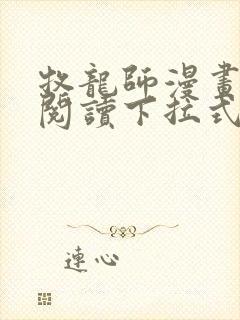 牧龍師漫畫
閱讀下拉式
連心